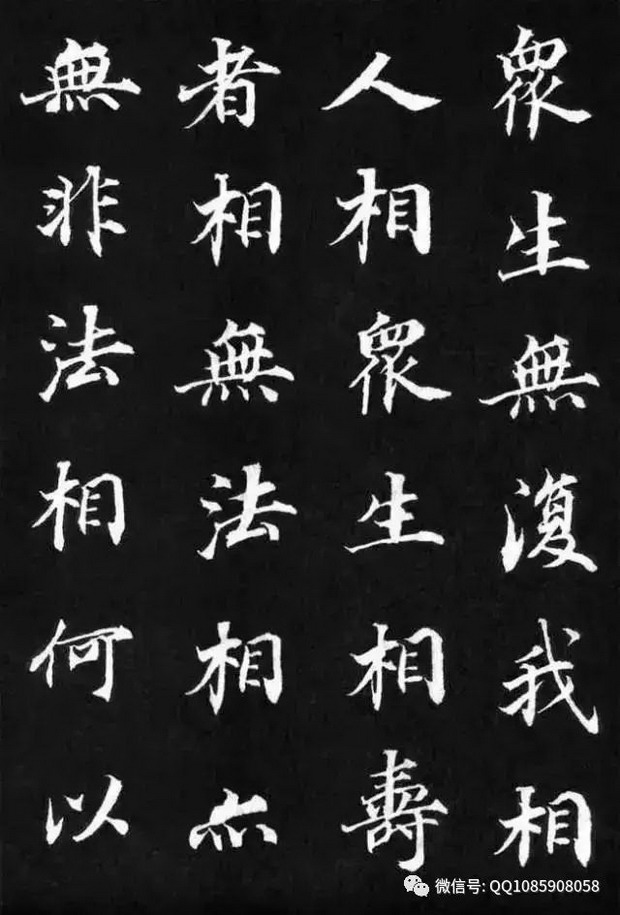 眾生無復我相
人相眾生相壽
者相無法相亦
無非法相何以
微信号: QQ1085908058